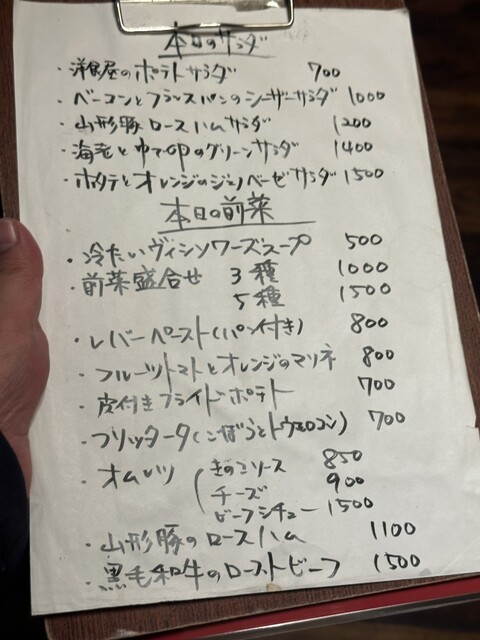 本日のサラダ
・洋食屋のポテトサラダ 700
・ベーコンとフランスパンのシーザーサラダ 1000
・山形豚ロースハムサラダ 1200
・海老とゆで卵のグリーンサラダ 1400
・ホタテとオレンジのジェノベーゼサラダ 1500
本日の前菜
・冷たいヴィシソワーズスープ 500
・前菜盛合せ 3種 1000
5種 1500
・レバーペースト(パン付き) 800
・フルーツトマトとオレンジのマリネ 800
・皮付きフライドポテト 700
・フリッタータ(ごぼうとトウモロコシ) 700
・オムレツ(きのこソース 850
チーズ 900
ビーフシチュー 1500
・山形豚のロースハム 1100
・黒毛和牛のローストビーフ 1500